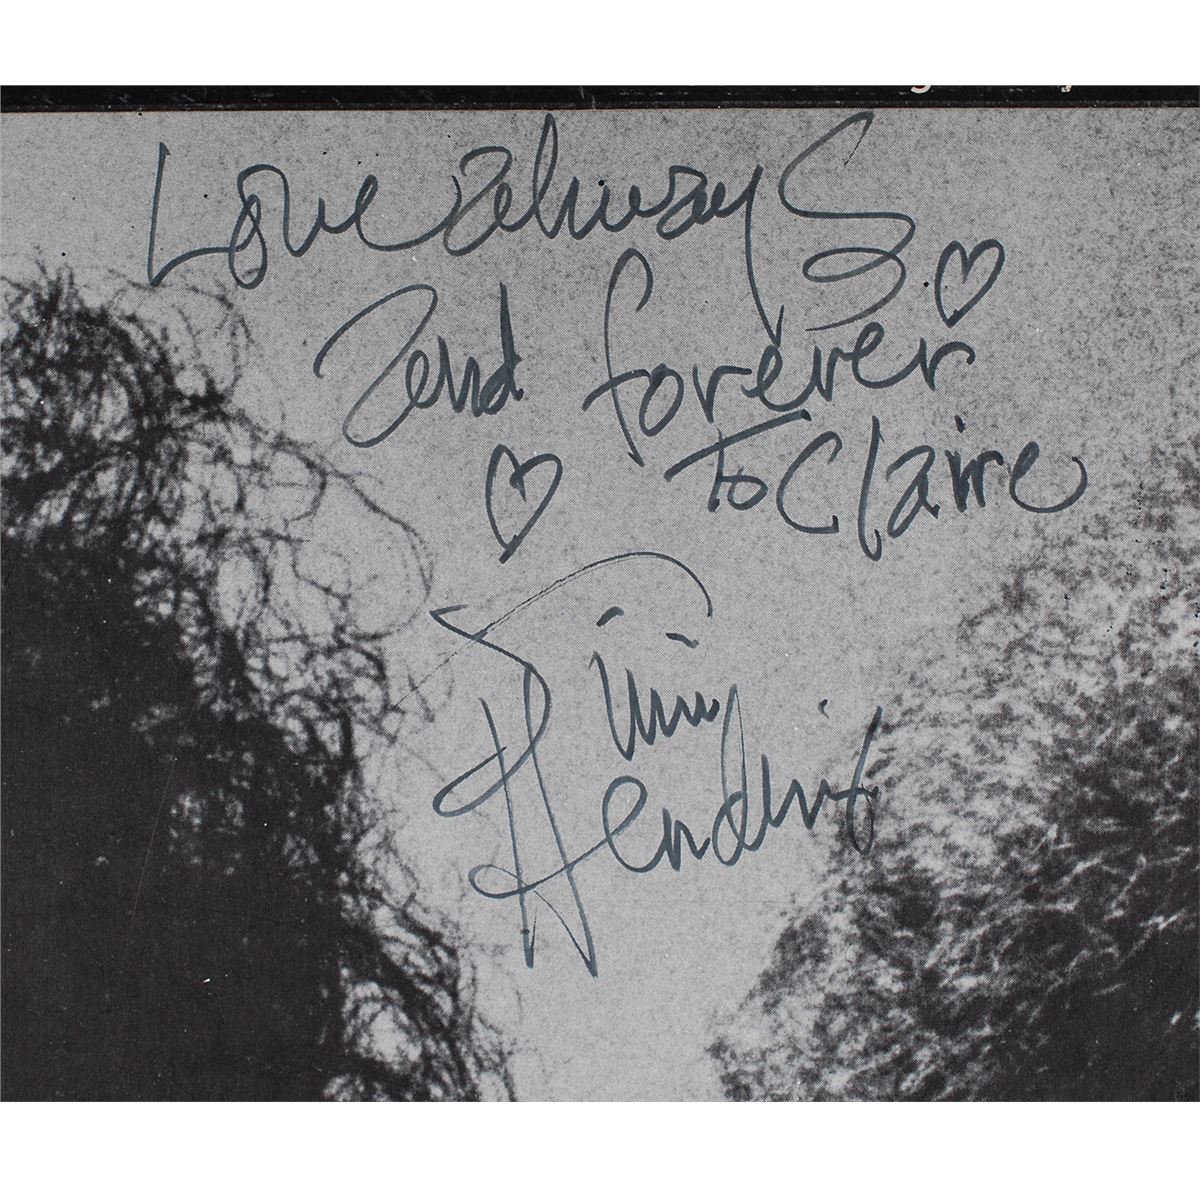 Love always
and forever
To Claire
Jimi
Hendrix